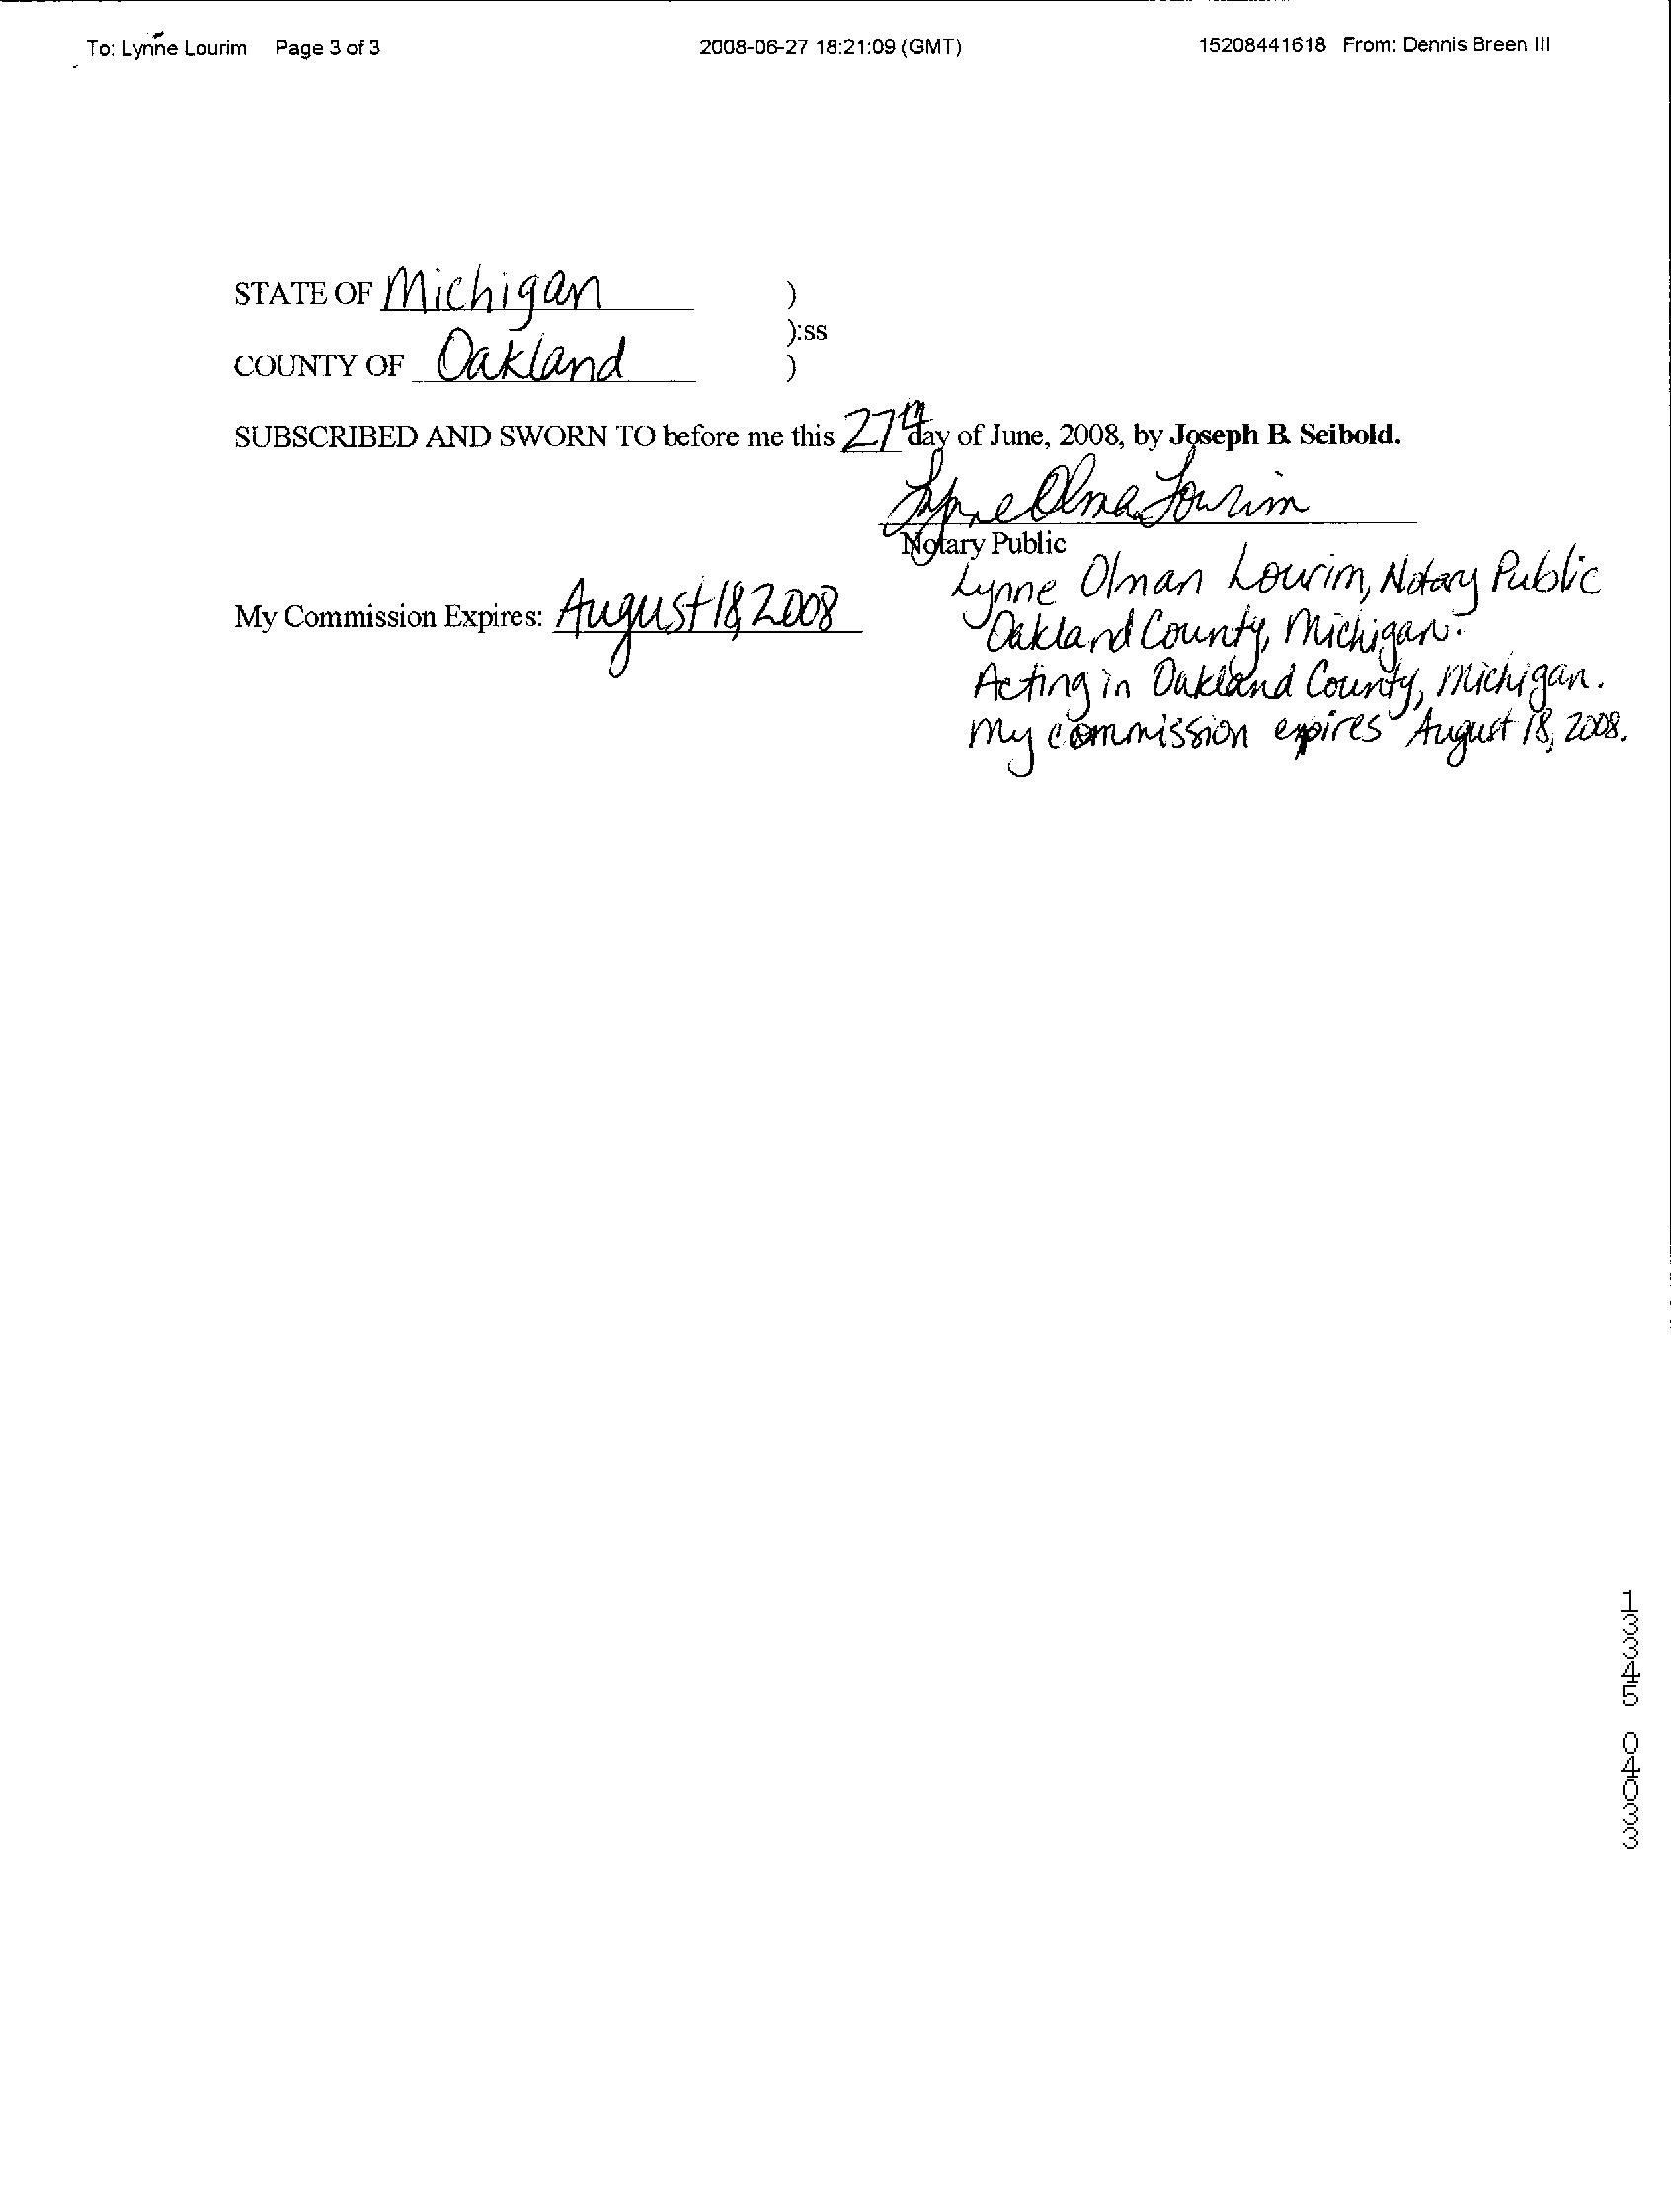 To: Lynne Lourim Page 3 of 3 2008-06-27 18:21:09 (GMT) 15208441618 From: Dennis Breen III
STATE OF Michigan )
):ss
COUNTY OF Oakland )
SUBSCRIBED AND SWORN TO before me this 27th day of June, 2008, by Joseph B. Seibold.
Lynne Olman Lourim
Notary Public
Lynne Olman Lourim, Notary Public
My Commission Expires: August 18, 2008
Oakland County, Michigan.
Acting in Oakland County, Michigan.
My commission expires August 18, 2008.
13345 04033